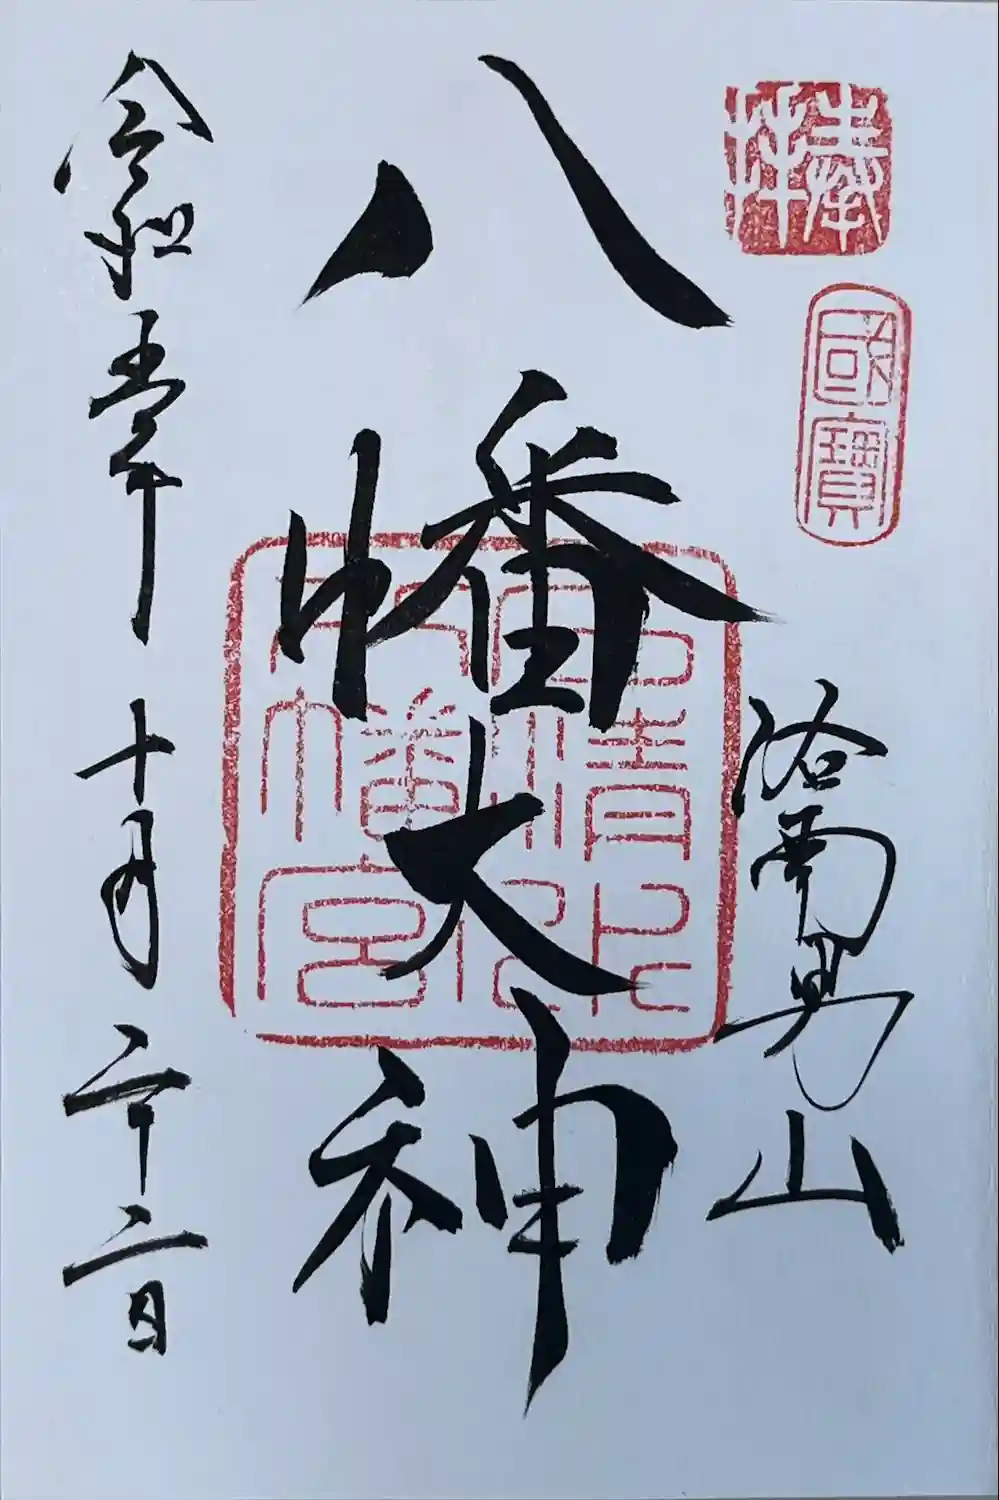 捧拜
國寶
洛南男山
八幡大神
石清水
八幡宮
令和五年十月二十二日